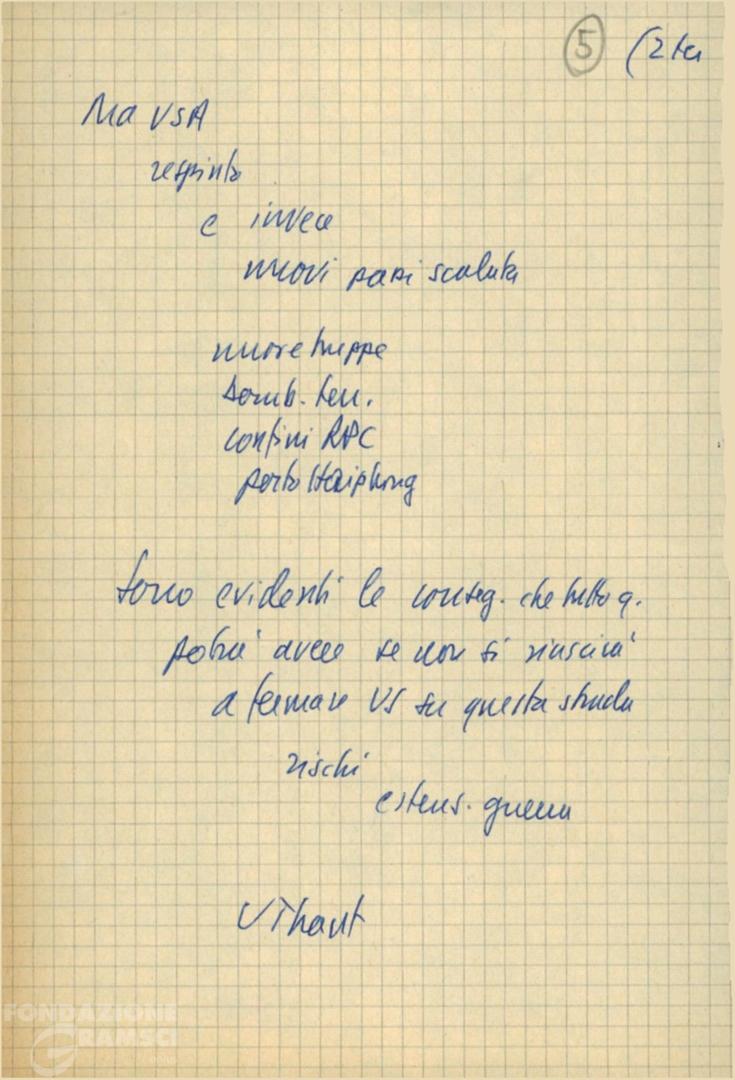 5 (2
Ma USA
respinto
e invece
nuovi passi scalata
nuove truppe
bomb. terr.
confini RPC
porto Haiphong
sono evidenti le conseg. che tutto q.
potrà avere se non si riuscirà
a fermare US su questa strada
rischi
estens. guerra
U Thant
FONDAZIONE
GRAMSCI